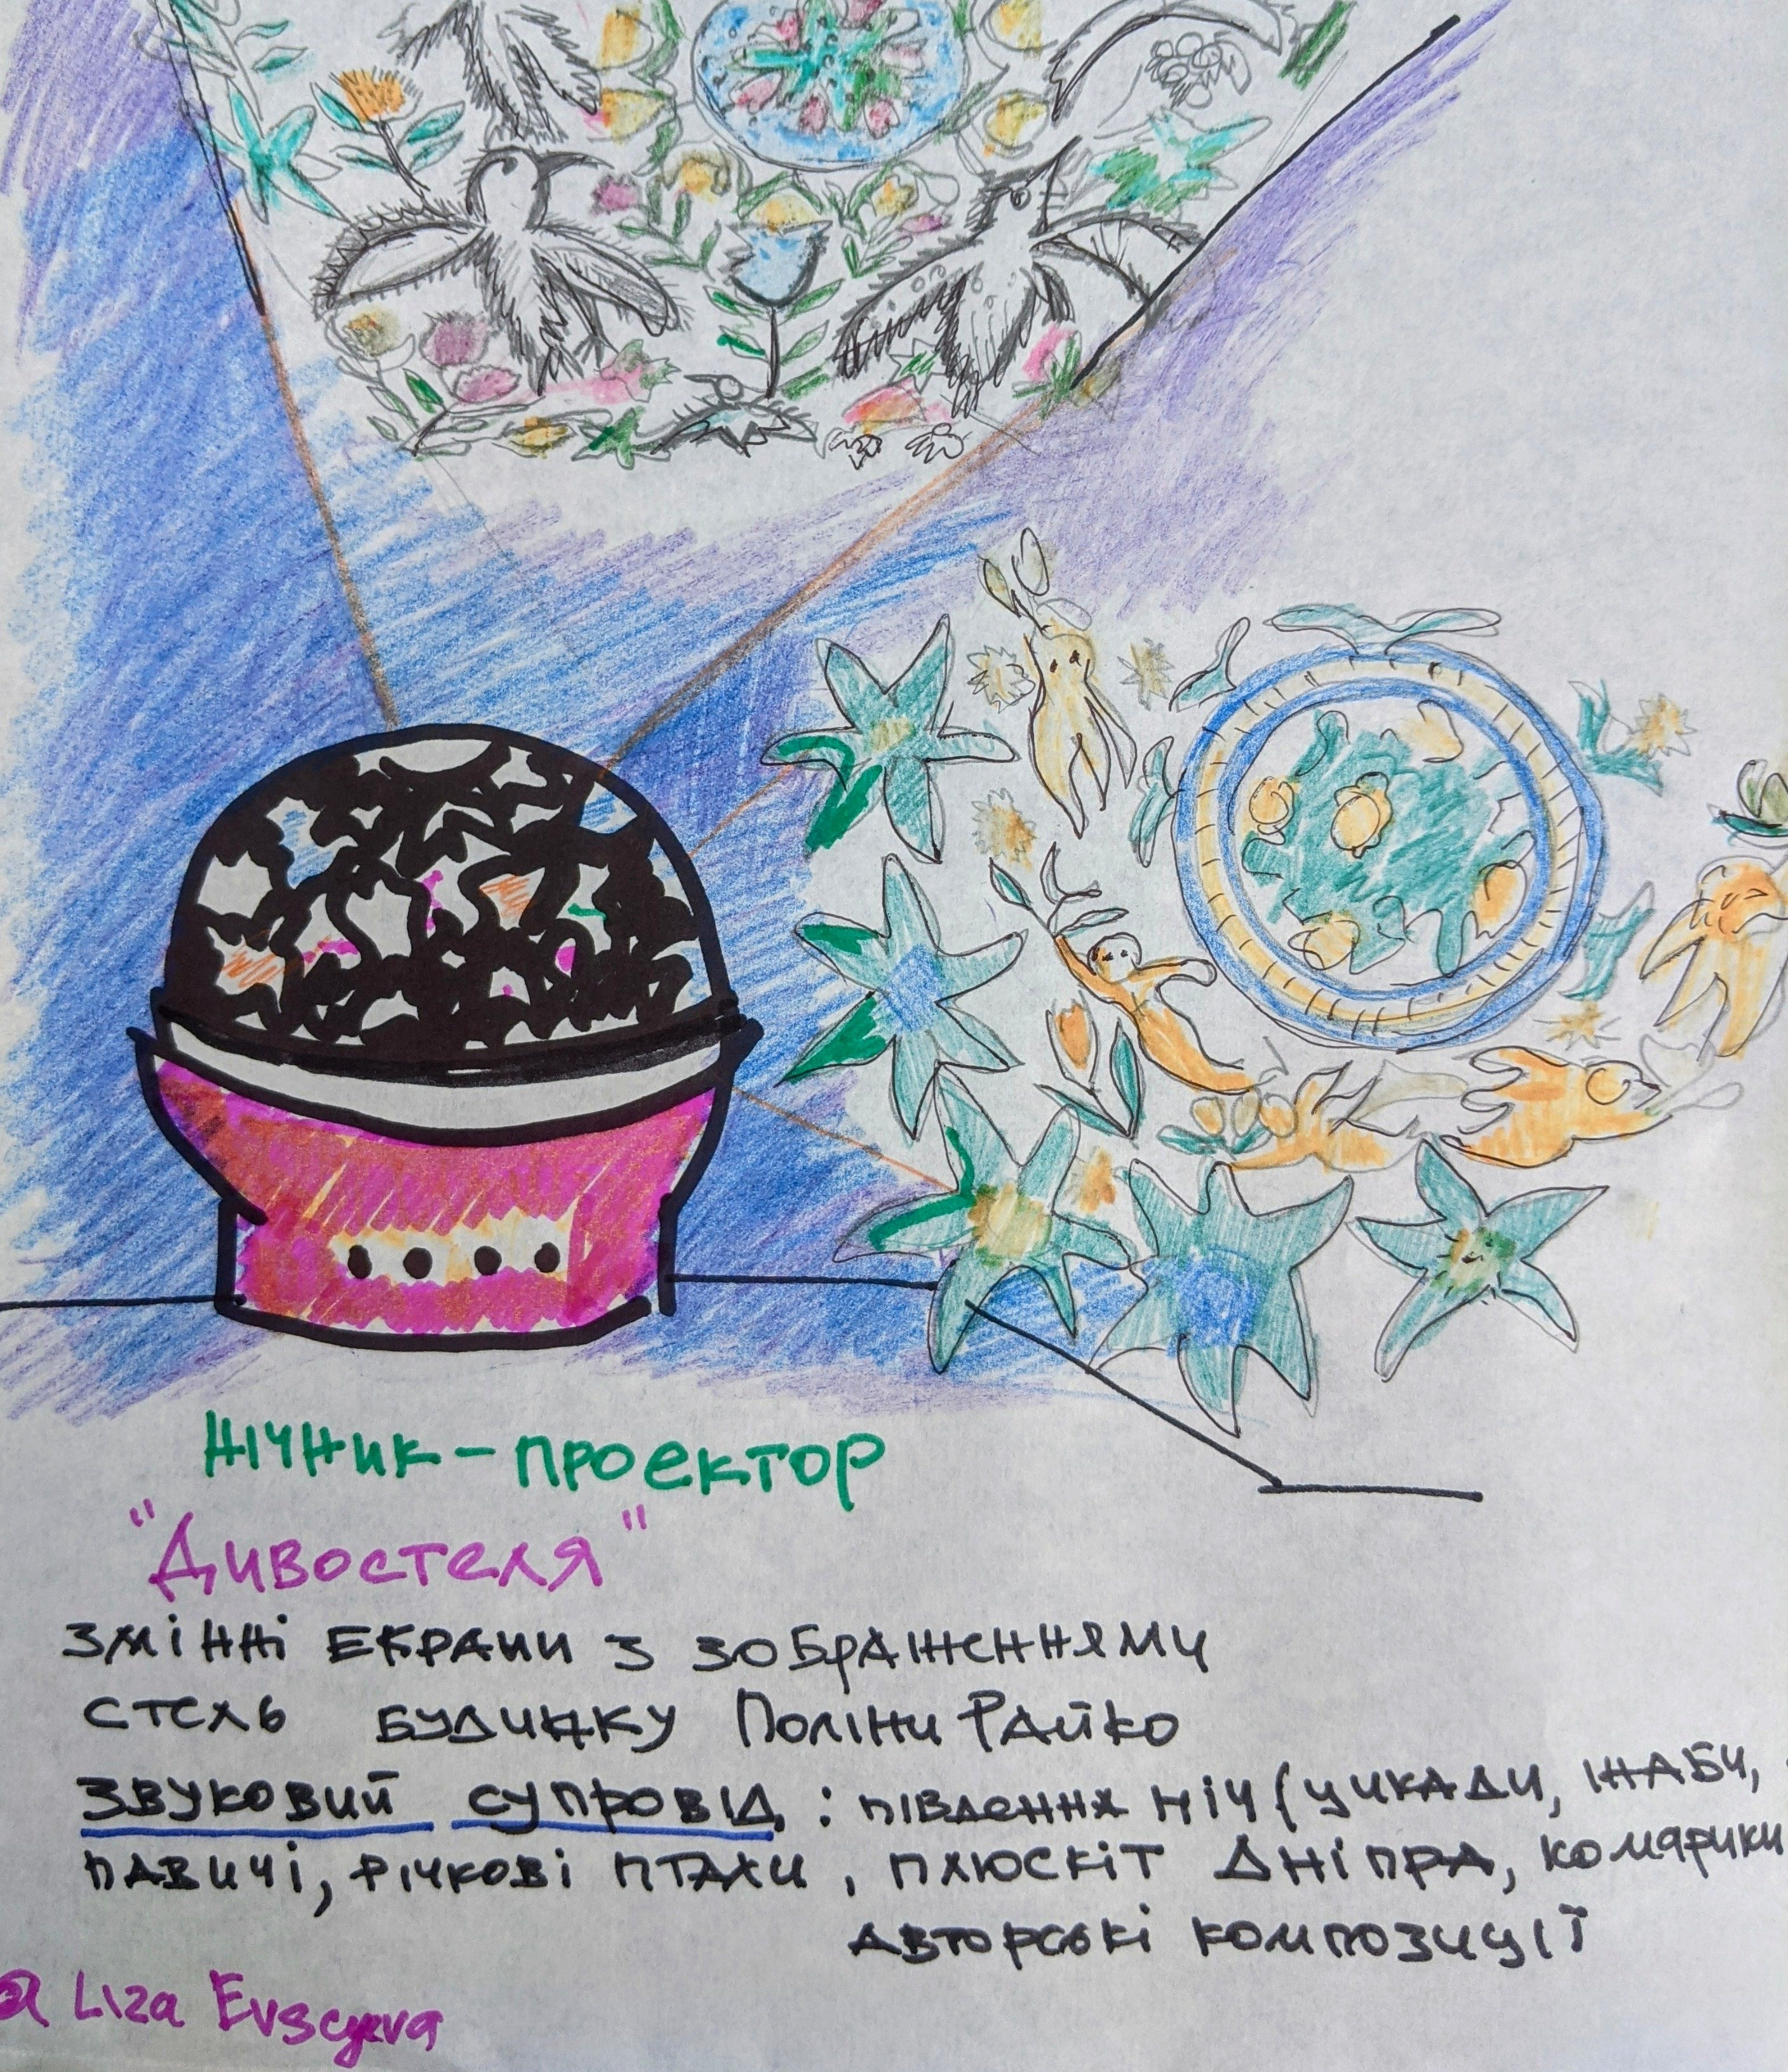 Нічник-проектор
"Дивостеля"
Змінні екрани з зображеннями
стель будинку Поліни Райко
Звуковий супровід: південня ніч (цикади, жаби,
павичі, річкові птахи, плюскіт Дніпра, комарики
авторські композиції
@ Liza Evseyeva